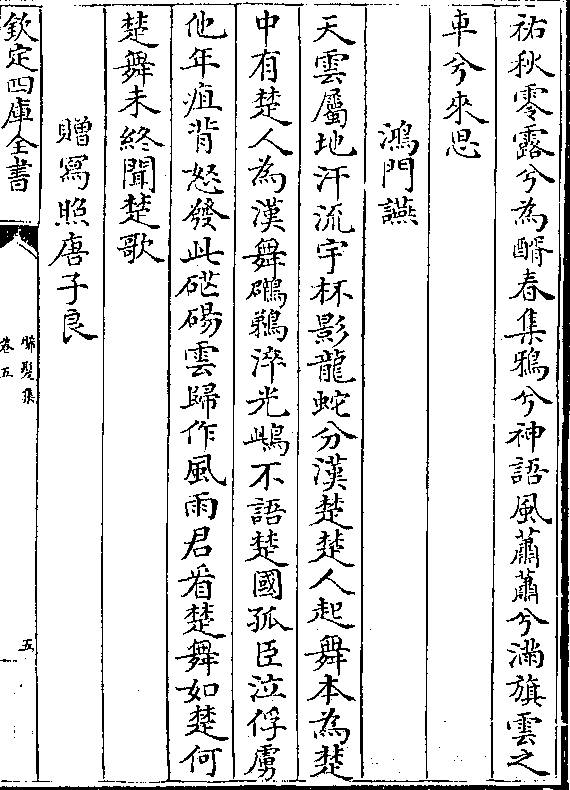 祐秋零露兮為醑春集鴉兮神語風蕭蕭兮滿旗雲之
車兮來思
鴻門讌
天雲屬地汗流宇杯影龍蛇分漢楚楚人起舞本為楚
中有楚人為漢舞鸊鵜淬光鴟不語楚國孤臣泣俘虜
他年疽背怒發此硭碭雲歸作風雨君看楚舞如楚何
楚舞未終聞楚歌
贈寫照唐子良
欽定四庫全書
晞髮集
卷五
五